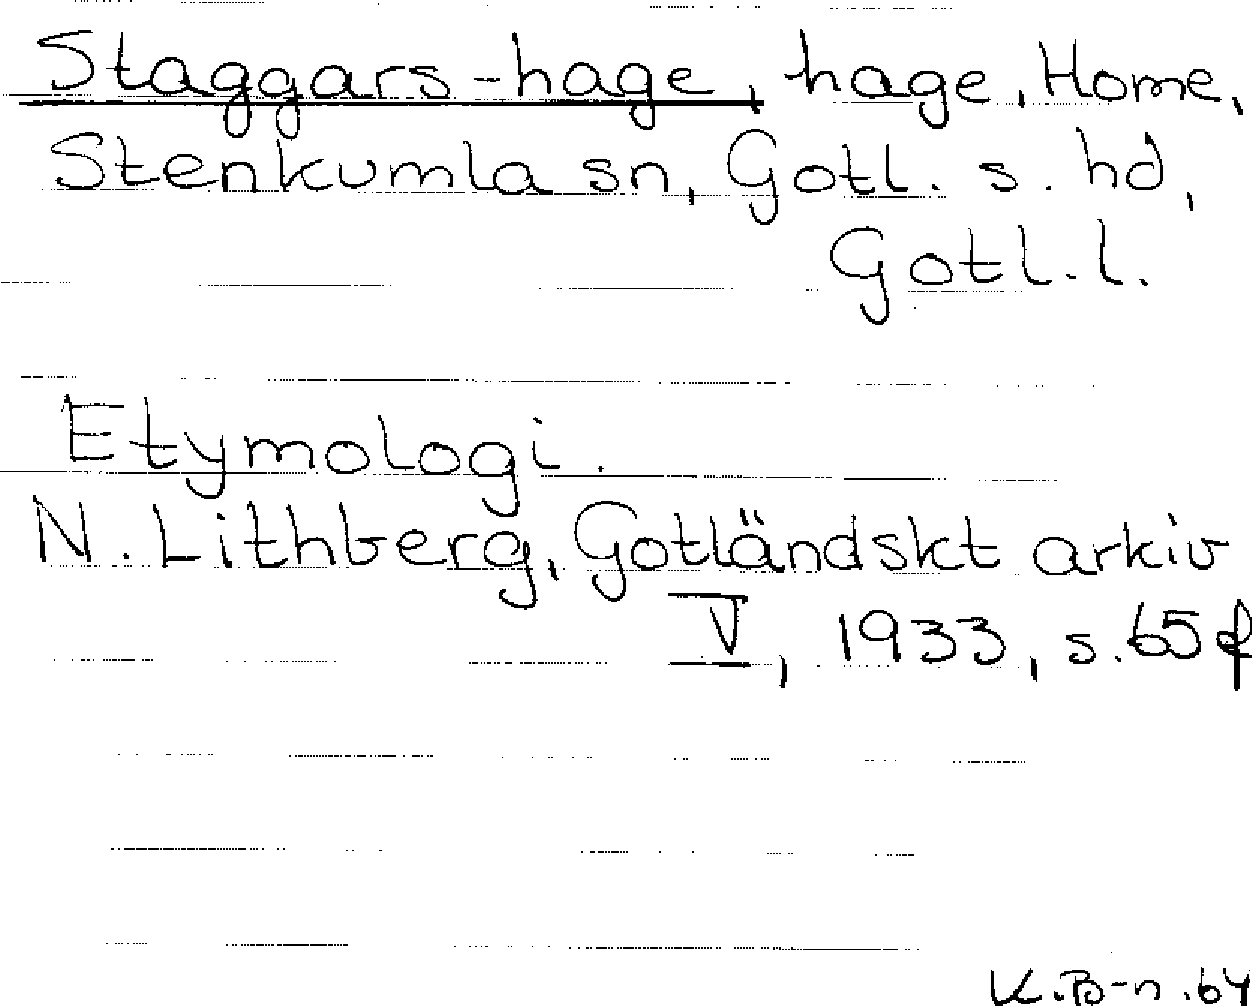 Staggars-hage, hage, Home,
Stenkumla sn, Gotl. s. hd,
Gotl. l.
Etymologi.
N. Lithberg, Gotländskt arkiv
V, 1933, s. 65 f
K.B-n. 64